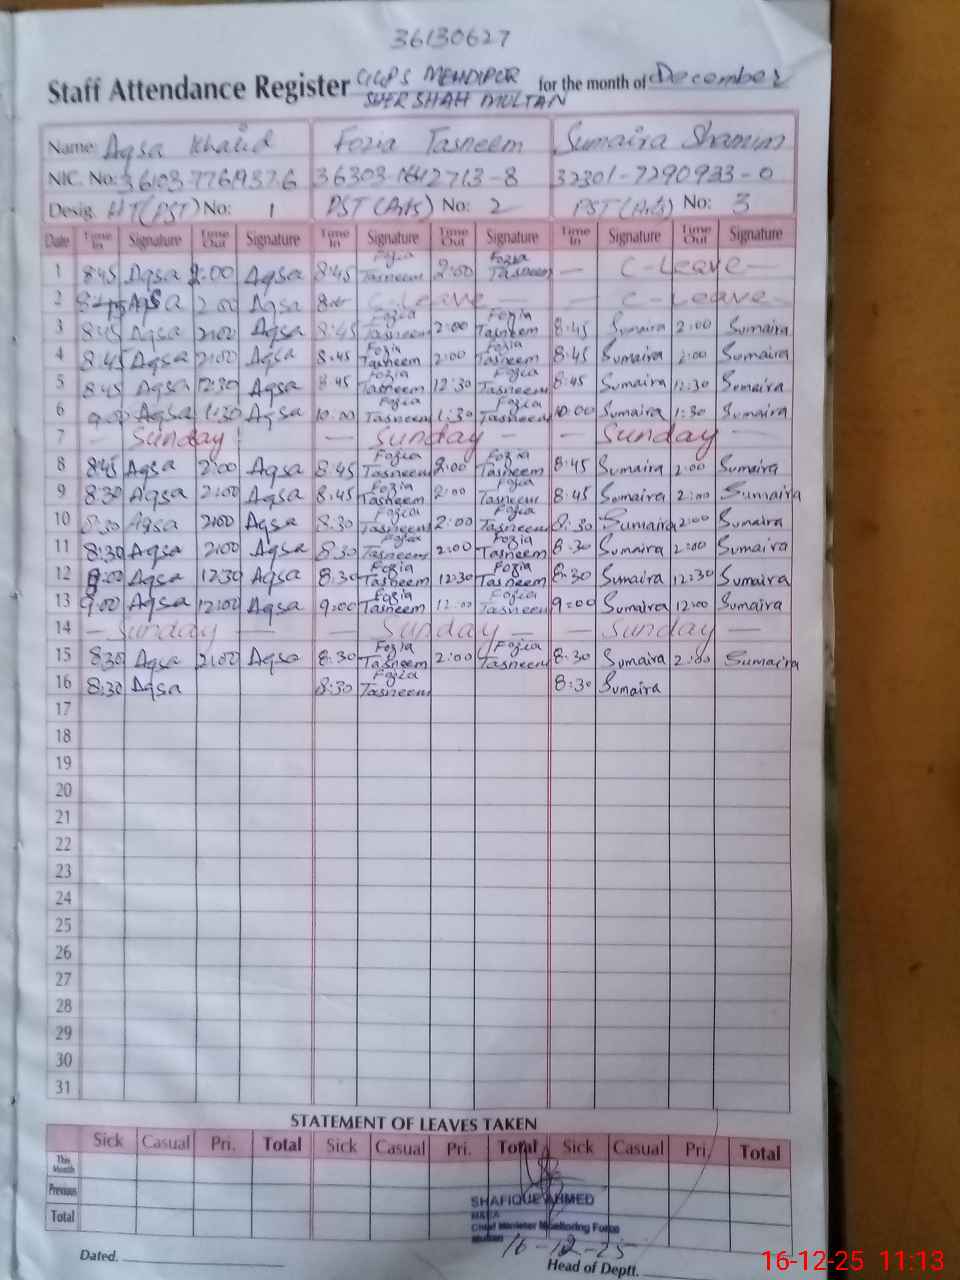 36130627
Staff Attendance Register GGPS MEHDIPUR SHER SHAH MULTAN for the month of December
Name: Aqsa Khalid Fozia Tasneem Sumaira Shamim
NIC. No: 36303-1642713-8 32301-7290933-0
Desig. HT(PST) No: 1 PST (Arts) No: 2 PST (Arts) No: 3
Date Time In Signature Time Out Signature Time In Signature Time Out Signature Time In Signature Time Out Signature
1 8:45 Aqsa 2:00 Aqsa 8:45 Fozia Tasneem 2:00 Fozia Tasneem — C-Leave —
2 Aqsa 2:00 Aqsa C-Leave — — C-Leave
3 8:45 Aqsa 2:00 Aqsa 8:45 Fozia Tasneem 2:00 Fozia Tasneem 8:45 Sumaira 2:00 Sumaira
4 8:45 Aqsa 2:00 Aqsa 8:45 Fozia Tasneem 2:00 Fozia Tasneem 8:45 Sumaira 2:00 Sumaira
5 8:45 Aqsa 12:30 Aqsa 8:45 Fozia Tasneem 12:30 Fozia Tasneem 8:45 Sumaira 12:30 Sumaira
6 9:00 Aqsa 1:30 Aqsa 10:00 Fozia Tasneem 1:30 Fozia Tasneem 10:00 Sumaira 1:30 Sumaira
7 — Sunday — Sunday — — Sunday —
8 8:45 Aqsa 2:00 Aqsa 8:45 Fozia Tasneem 2:00 Fozia Tasneem 8:45 Sumaira 2:00 Sumaira
9 8:30 Aqsa 2:00 Aqsa 8:45 Fozia Tasneem 2:00 Fozia Tasneem 8:45 Sumaira 2:00 Sumaira
10 8:30 Aqsa 2:00 Aqsa 8:30 Fozia Tasneem 2:00 Fozia Tasneem 8:30 Sumaira 2:00 Sumaira
11 8:30 Aqsa 2:00 Aqsa 8:30 Fozia Tasneem 2:00 Fozia Tasneem 8:30 Sumaira 2:00 Sumaira
12 Aqsa 12:30 Aqsa 8:30 Fozia Tasneem 12:30 Fozia Tasneem 8:30 Sumaira 12:30 Sumaira
13 9:00 Aqsa 12:00 Aqsa 9:00 Fozia Tasneem 12:00 Fozia Tasneem 9:00 Sumaira 12:00 Sumaira
14 — Sunday — — Sunday — — Sunday —
15 8:30 Aqsa 2:00 Aqsa 8:30 Fozia Tasneem 2:00 Fozia Tasneem 8:30 Sumaira 2:00 Sumaira
16 8:30 Aqsa 8:30 Fozia Tasneem 8:30 Sumaira
17
18
19
20
21
22
23
24
25
26
27
28
29
30
31
STATEMENT OF LEAVES TAKEN
Sick Casual Pri. Total Sick Casual Pri. Total Sick Casual Pri. Total
This Month
Previous
Total
SHAFIQUE AHMED
MEA
Chief Minister Monitoring Force
Multan
16-12-25
Dated.
Head of Deptt.
16-12-25 11:13